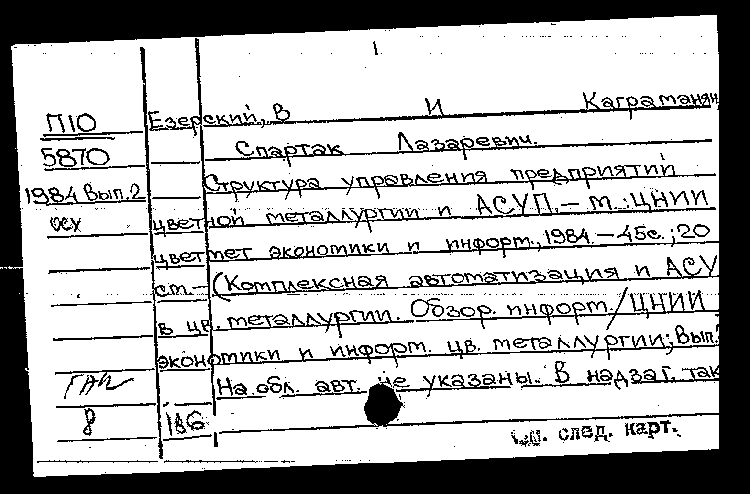 П10
5870
1984 Вып.2
осу
Езерский, В И Каграманян,
Спартак Лазаревич.
Структура управления предприятий
цветной металлургии и АСУП.— М.: ЦНИИ
цветмет экономики и информ., 1984.—45с.; 20
см.—(Комплексная автоматизация и АСУ
в цв. металлургии. Обзор. информ./ЦНИИ
экономики и информ. цв. металлургии; Вып.
На обл. авт. не указаны. В надзаг. так
8
186
См. след. карт.